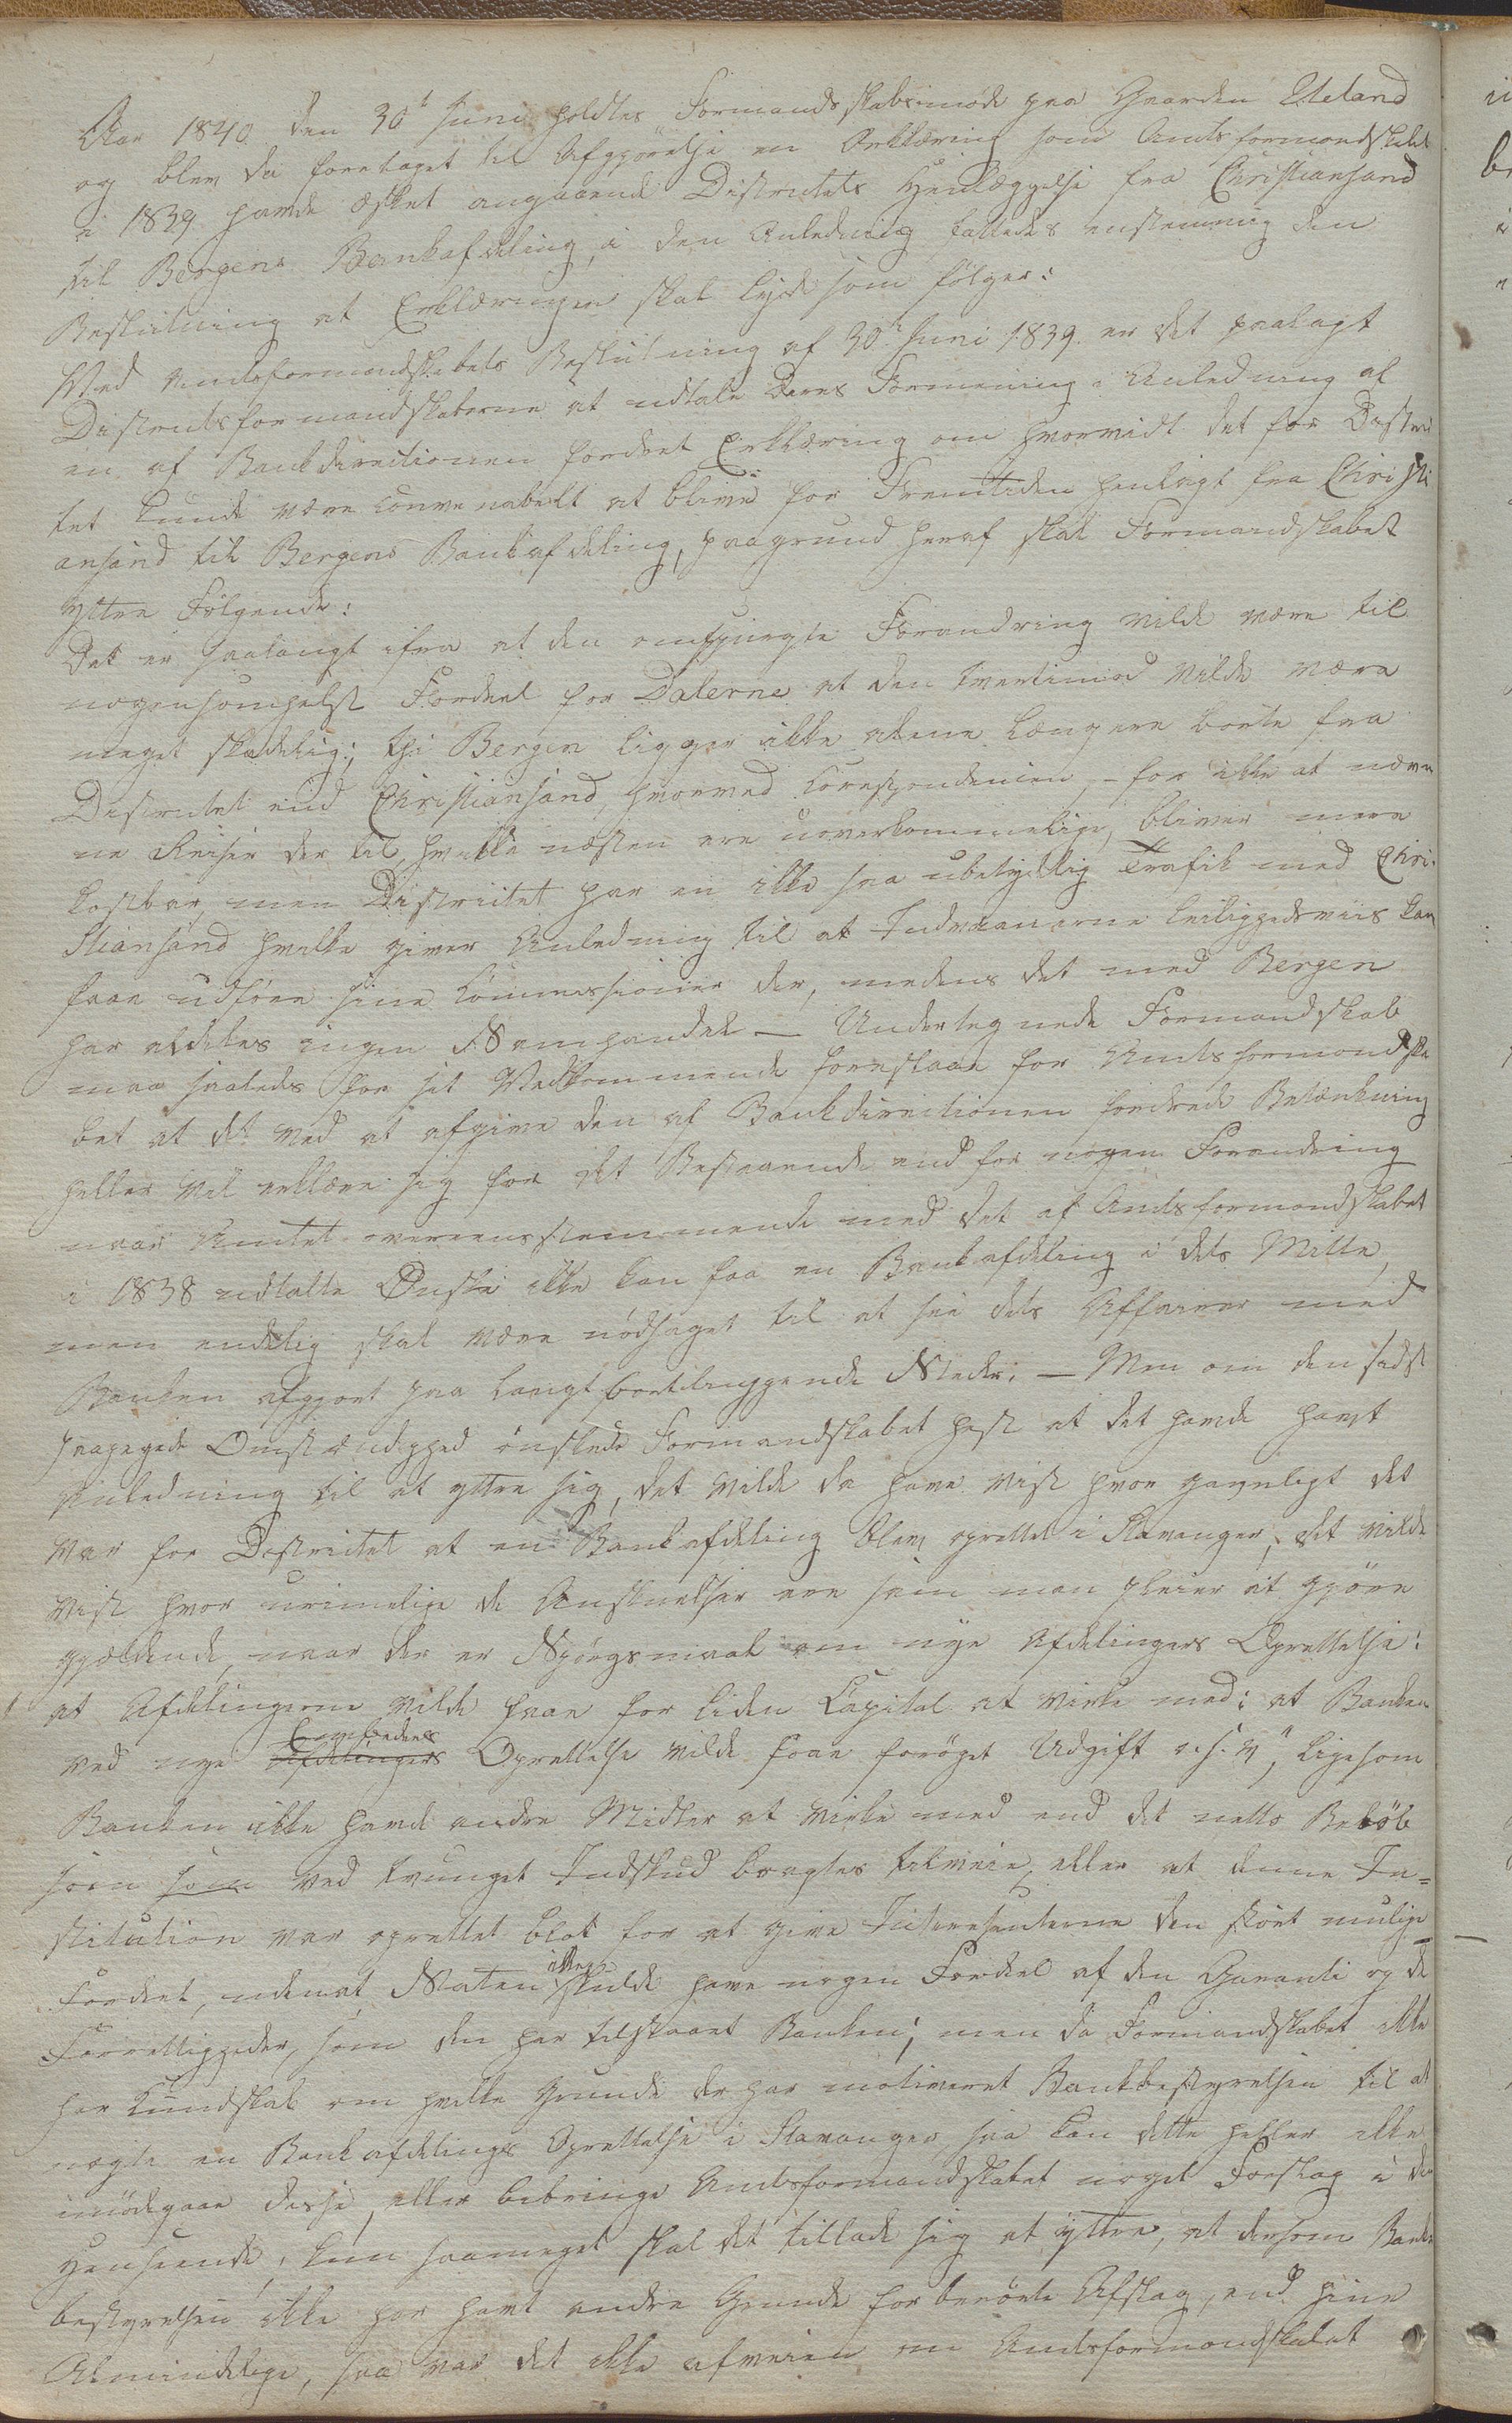 Aar 1840. den 30t Juni holdtes Formandsskabsmøde paa Gaarden Ueland
og blev da foretaget til Afgjørelse en Erklæring som Amtsformandskabet
i 1839 havde æsket angaaende Districtets Henlæggelse fra Christiansand
til Bergens Bankafdeling, i den Anledning fattedes enstemmig den
Beslutning at Erklæringen skal lyde som følger:
Ved Amtsformandskabets Beslutning af 30t Juni 1839. er det paalagt
Districtsformandskaberne at udtale Deres Formening i Anledning af
en af Bankdirectionen fordret Erklæring om hvorvidt det for Distric
tet kunde være convenabelt at blive for Fremtiden henlagt fra Christi
ansand til Bergens Bankafdeling, paagrund heraf skal Formandskabet
yttre Følgende:
Det er saalangt ifra at den omspurgte Forandring vilde være til
nogensomhelst Fordeel for Dalerne at den tvertimod vilde være
meget skadelig; thi Bergen ligger ikke alene længere borte fra
Districtet end Christiansand, hvorved Correspondencen, – for ikke at næv
ne Reiser der til, hvilke næsten ere uoverkommelige, bliver mere
kostbar, men Districtet har en ikke saa ubetydelig Trafik med Chri-
stiansand hvilke giver Anledning til at Indvaanerne leilighedsviis kan
faae udføre sine Commissioner der, medens det med Bergen
har aldeles ingen Samhandel – Undertegnede Formandskab
maa saaledes for sit Vedkommende foreslaae for Amtsformandska
bet at det ved at afgive den af Bankdirectionen fordrede Betænkning
heller vil erklære sig for det Bestaaende end for nogen Forandring
naar Amtet overeensstemmende med det af Amtsformandskabet
i 1838 udtalte Ønske ikke kan faa en Bankafdeling i dets Midte,
men endelig skal være nødsaget til at see dets Affairer med
Banken afgjort paa langt bortliggende Steder. – Men om den sidst
paapegede Omstændighed ønskede Formandskabet helst at det havde havt
Anledning til at yttre sig, det vilde da have vist hvor gavnligt det
var for Districtet at en Bankafdeling blev oprettet i Stavanger, det vilde
vist hvor urimelige de Anskuelser ere som man pleier at gjøre
gjældende, naar der er Spørgsmaal om nye Afdelingers Oprettelse:
at Afdelingerne vilde faae for liden Capital at virke med; at Banken
ved nye Afdelingers Oprettelse vilde faae forøget Udgift o.s.v", ligesom
Banken ikke havde andre Midler at virke med end det netto Beløb
som som ved tvunget Indskud bragtes tilveie, eller at denne In-
stitution var oprettet blot for at give Interesenterne den størst mulige
Fordeel, uden at Staten skulde have nogen Fordeel af den Garanti og de
Forrettigheder, som den har tilstaaet Banken; men da Formandskabet ikke
har Kundskab om hvilke Grunde der har motiveret Bankbestyrelsen til at
nægte en Bankafdelings Oprettelse i Stavanger, saa kan dette heller ikke
imødegaae disse, eller bebringe Amtsformandskabet noget Forslag i den
Henseende, kun saameget skal det tillade sig at yttre, at dersom Bank
bestyrelsen ikke har havt andre Grunde for berørte Afslag, end hine
Almindelige, saa var det ikke afveien om Amtsformandskabet